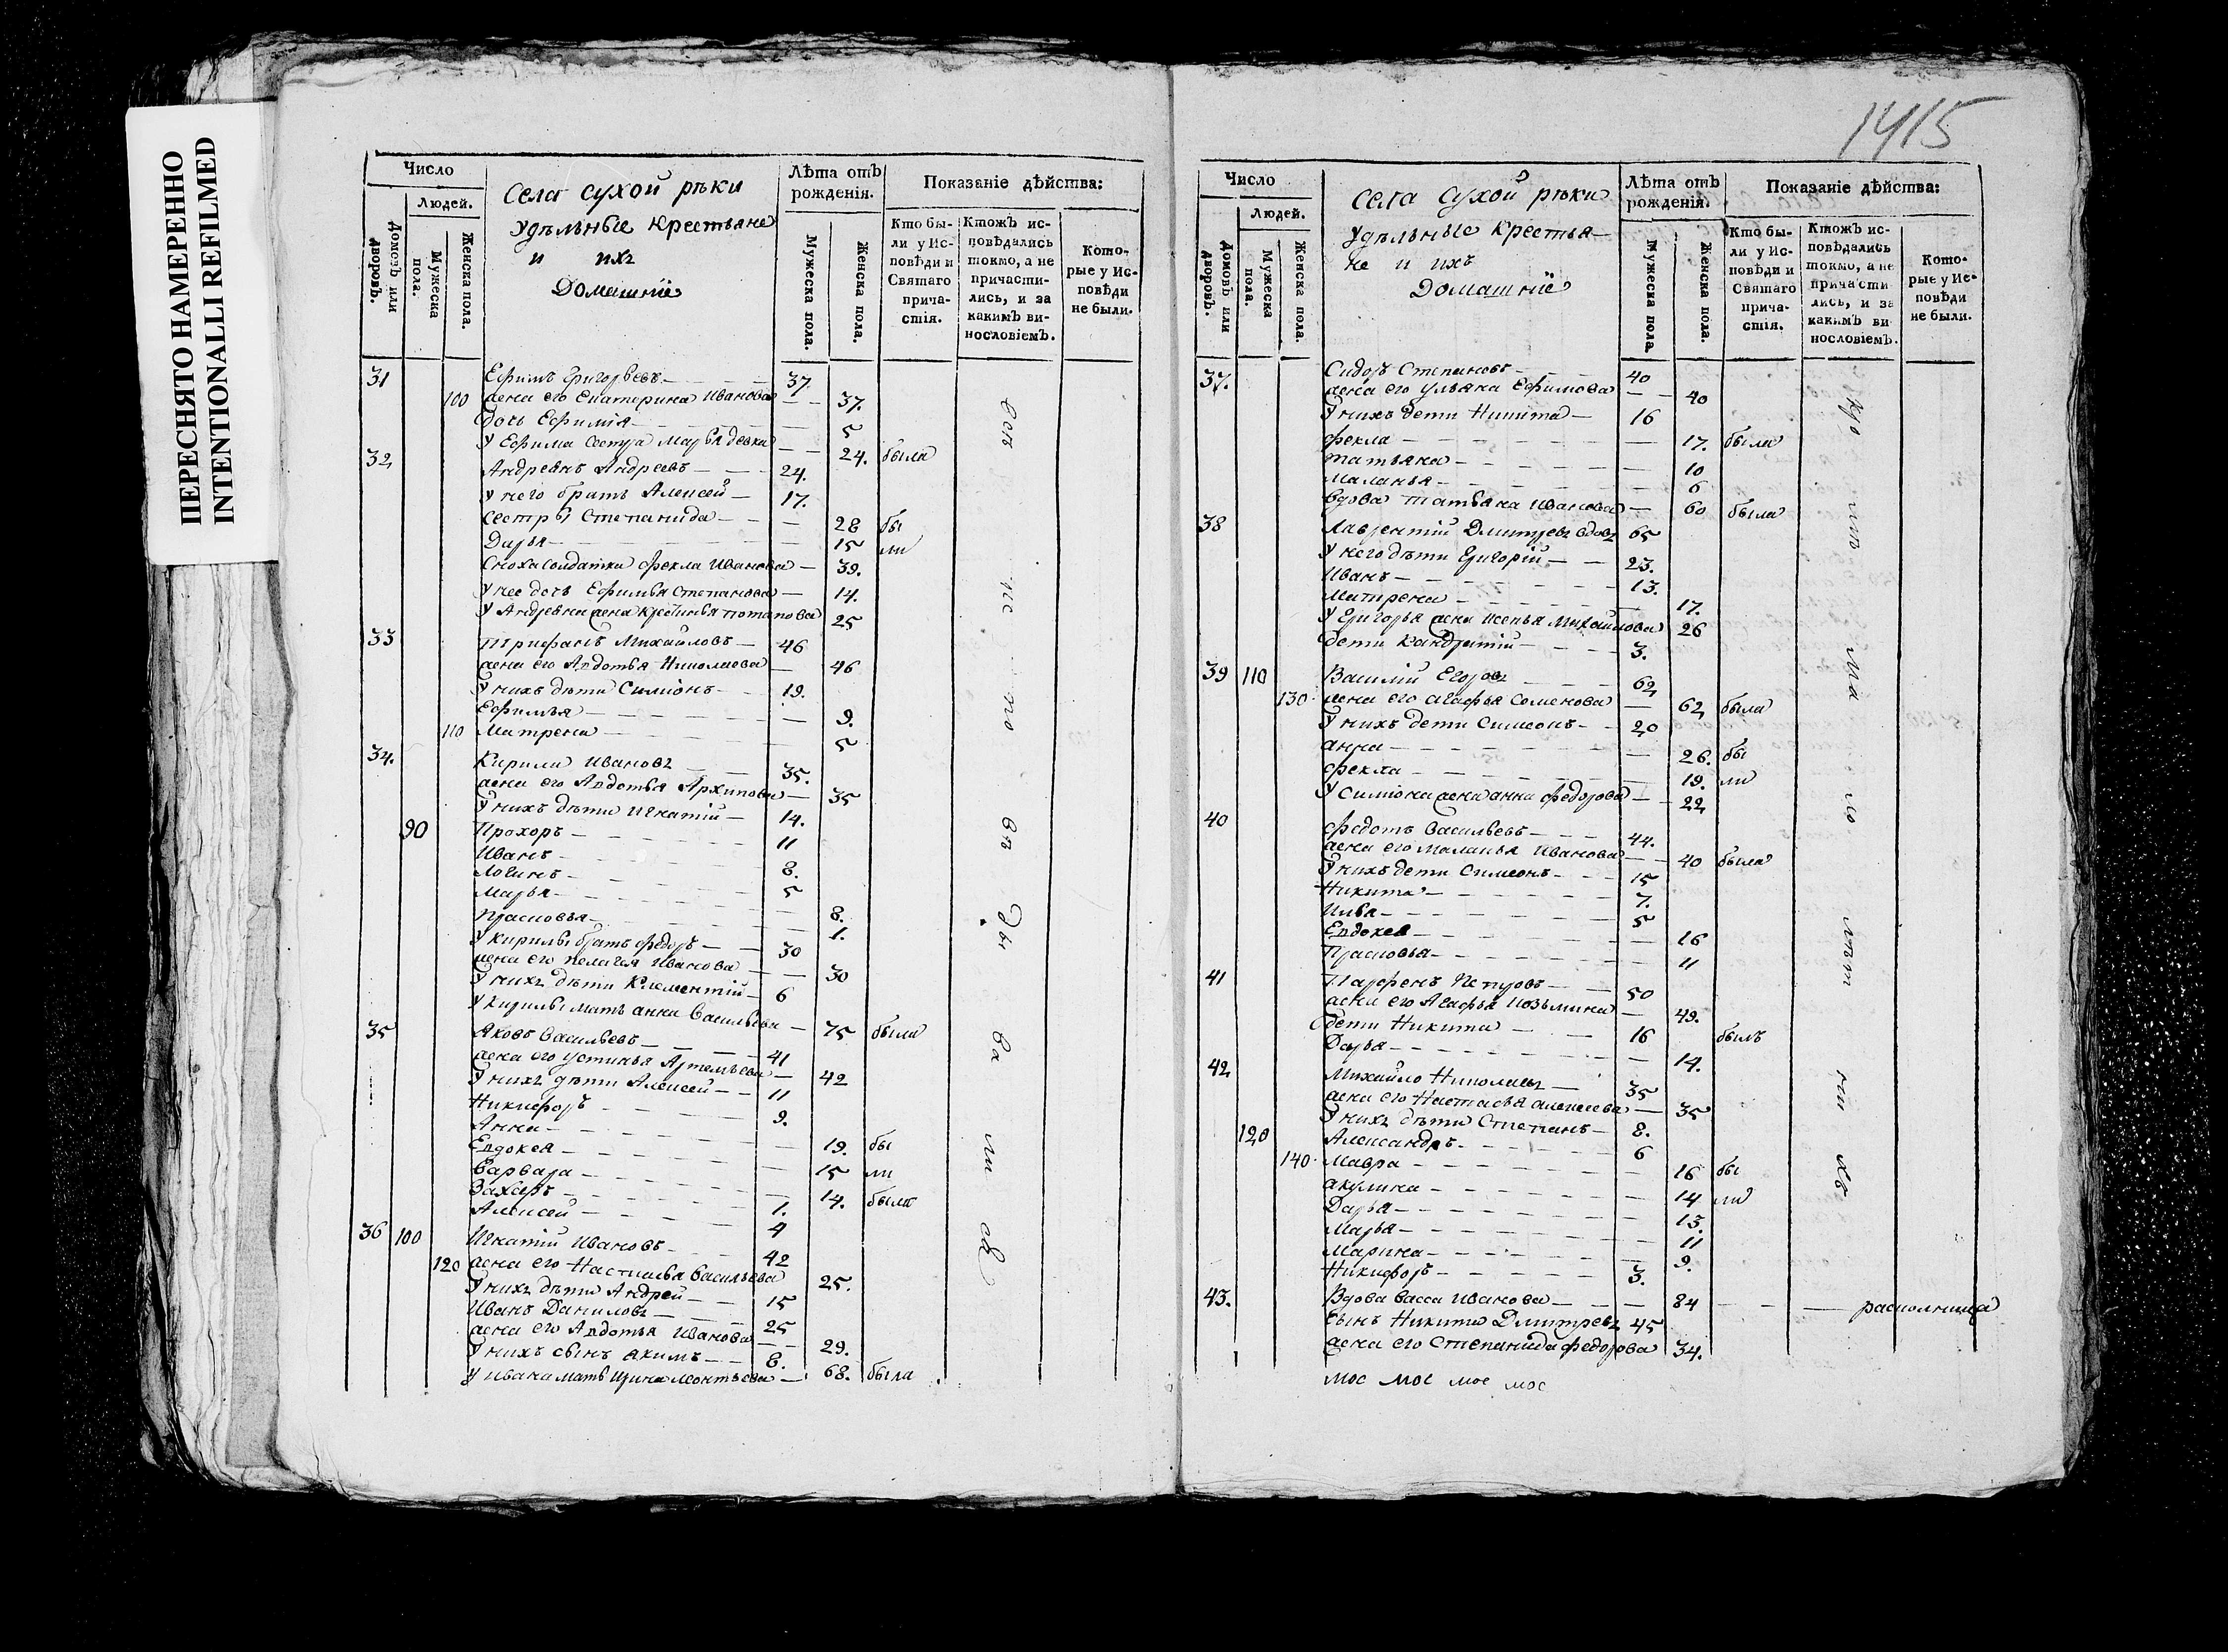 ПЕРЕСНЯТО НАМЕРЕННО
INTENTIONALLI REFILMED
Число
Людей.
Домовъ или дворовъ.
Мужеска пола.
Женска пола.
Села сухой рѣки
удѣльные крестьяне
и ихъ
Домашніе
Лѣта отъ рожденія.
Мужеска пола.
Женска пола.
Показаніе дѣйства:
Кто бы-
ли у Ис-
повѣди и
Святаго
прича-
стія.
Ктожъ ис-
повѣдались
токмо, а не
причасти-
лись, и за
какимъ ви-
нословіемъ.
Кото-
рые у Ис-
повѣди
не были.
31 Ефимъ Григорьевъ 37.
100 жена его Екатерина Иванова 37.
дочь Ефимія 5
У Ефима сестра Марья девка 24. была
32 Андреянъ Андреевъ 24.
У него братъ Алексей 17.
сестры Степанида 28 бы
Дарья 15 ли
Сноха солдатка Фекла Иванова 39.
У нее дочь Ефимья Степанова 14.
У Андреяна жена Крестинья Потапова 25
33 Трифанъ Михайловъ 46
жена его Авдотья Николаева 46
У нихъ дѣти Симіонъ 19.
Ефимья 9.
110 Матрена 5
34. Кирила Ивановъ 35.
жена его Авдотья Архипова 35
У нихъ дѣти Игнатій 14.
90 Прохоръ 11
Иванъ 8.
Логинъ 5
Марья 8.
Прасковья 1.
У Кирилы братъ Федоръ 30
жена его Пелагея Иванова 30
У нихъ дѣти Клементій 6
У Кирилы мать Анна Васильева 75 была
35 Яковъ Васильевъ 41
жена его Устинья Артемьева 42
У нихъ дѣти Алексей 11
Никифоръ 9.
Анна 19. бы
Евдокея 15 ли
Варвара 14. была
Захаръ 1.
Алексей 4
36 100 Игнатій Ивановъ 42
120 жена его Настасья Васильева 25.
У нихъ дѣти Андрей 15
Иванъ Даниловъ 25
жена его Авдотья Иванова 29.
У нихъ сынъ Якимъ 8.
У Ивана мать Ирина Леонтьева 68. была
1415
Число
Людей.
Домовъ или дворовъ.
Мужеска пола.
Женска пола.
Села Сухой рѣки
Удѣльные крестья-
не и ихъ
Домашніе
Лѣта отъ рожденія.
Мужеска пола.
Женска пола.
Показаніе дѣйства:
Кто бы-
ли у Ис-
повѣди и
Святаго
прича-
стія.
Ктожъ ис-
повѣдались
токмо, а не
причасти
лись, и за
какимъ ви
нословіемъ.
Кото-
рые у Ис-
повѣди
не были.
37. Сидоръ Степановъ 40
жена его Ульяна Ефимова 40
У нихъ дети Никита 16
Фекла 17. была
татьяна 10
Маланья 6
вдова татьяна Иванова 60 была
38 Лаврентій Дмитревъ вдовъ 65
У него дѣти Григорій 23.
Иванъ 13.
Матрена 17.
У Григорья жена Ксенья Михайлова 26
дети Кандратій 3.
39 110 Василій Егоровъ 62
130 жена его Агафья Семенова 62 была
У нихъ дети Симеонъ 20
анна 26. бы
фекла 19. ли
У Симіона жена анна Федорова 22
40 Федотъ Васильевъ 44.
жена его Маланья Иванова 40 была
У нихъ дети Симеонъ 15
Никита 7.
Илья 5
Евдокея 16
Прасковья 11
41 Парфенъ Петровъ 50
жена его Агафья Козьмина 49.
дети Никита 16 былъ
Дарья 14.
42 Михайло Николаевъ 35
жена его Настасья алексеева 35
У нихъ дѣти Степанъ 8.
120 Александръ 6
140 Мавра 16 бы
акулина 14 ли
Дарья 13.
Марья 11
Марина 9.
Никифоръ 3.
43. Вдова Васса Иванова 84 раскольница
Сынъ Никита Дмитревъ 45
жена его Степанида Федорова 34.